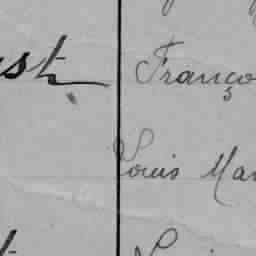 ust Franço
Louis Mar